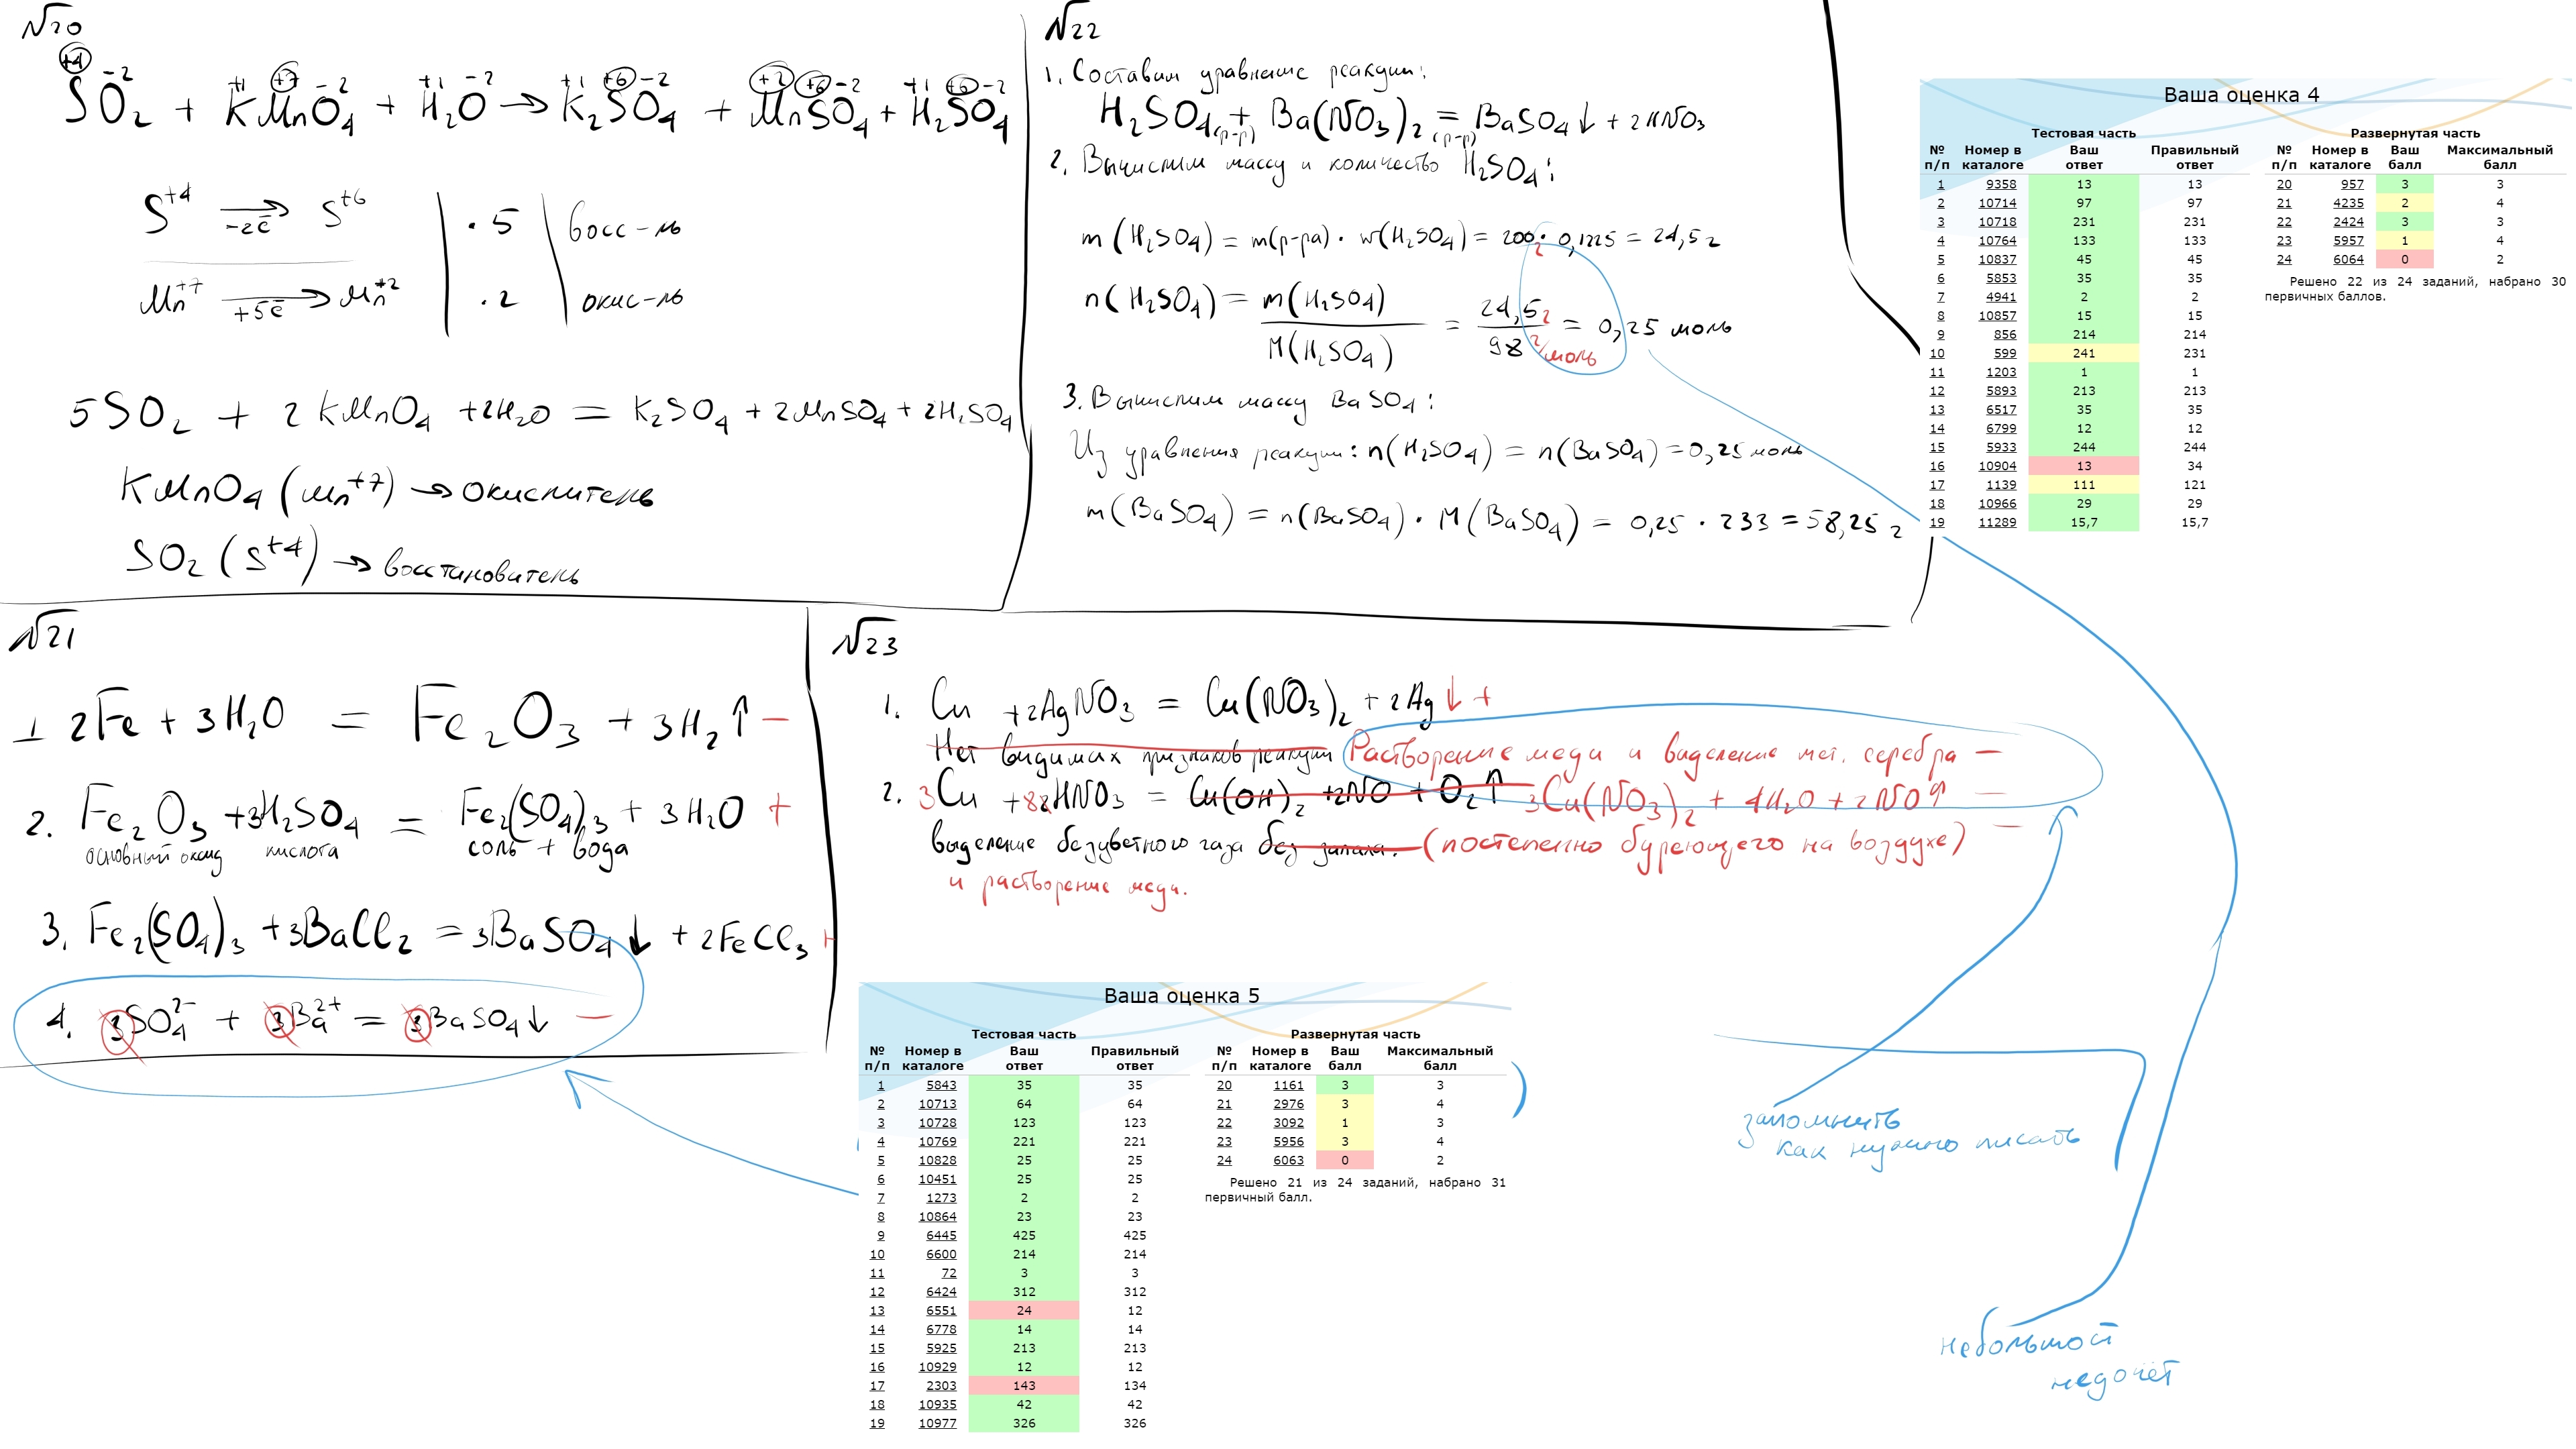 №20
+4 -2 +1 +7 -2 +1 -2 +1 +6 -2 +2 +6 -2 +1 +6 -2
SO₂ + KMnO₄ + H₂O → K₂SO₄ + MnSO₄ + H₂SO₄
S⁺⁴ →(-2ē) S⁺⁶ | · 5 | восс-ль
Mn⁺⁷ →(+5ē) Mn⁺² | · 2 | окис-ль
5SO₂ + 2KMnO₄ + 2H₂O = K₂SO₄ + 2MnSO₄ + 2H₂SO₄
KMnO₄ (Mn⁺⁷) → окислитель
SO₂ (S⁺⁴) → восстановитель
№22
1. Составим уравнение реакции:
H₂SO₄(р-р) + Ba(NO₃)₂(р-р) = BaSO₄↓ + 2HNO₃
2. Вычислим массу и количество H₂SO₄:
m(H₂SO₄) = m(р-ра) · w(H₂SO₄) = 200г · 0,1225 = 24,5 г
n(H₂SO₄) = m(H₂SO₄) / M(H₂SO₄) = 24,5г / 98 г/моль = 0,25 моль
3. Вычислим массу BaSO₄:
Из уравнения реакции: n(H₂SO₄) = n(BaSO₄) = 0,25 моль
m(BaSO₄) = n(BaSO₄) · M(BaSO₄) = 0,25 · 233 = 58,25 г
Ваша оценка 4
Тестовая часть
№ п/п Номер в каталоге Ваш ответ Правильный ответ
1 9358 13 13
2 10714 97 97
3 10718 231 231
4 10764 133 133
5 10837 45 45
6 5853 35 35
7 4941 2 2
8 10857 15 15
9 856 214 214
10 599 241 231
11 1203 1 1
12 5893 213 213
13 6517 35 35
14 6799 12 12
15 5933 244 244
16 10904 13 34
17 1139 111 121
18 10966 29 29
19 11289 15,7 15,7
Развернутая часть
№ п/п Номер в каталоге Ваш балл Максимальный балл
20 957 3 3
21 4235 2 4
22 2424 3 3
23 5957 1 4
24 6064 0 2
Решено 22 из 24 заданий, набрано 30
первичных баллов.
№21
1 2Fe + 3H₂O = Fe₂O₃ + 3H₂↑ −
2. Fe₂O₃ + 3H₂SO₄ = Fe₂(SO₄)₃ + 3H₂O +
основный оксид кислота соль + вода
3. Fe₂(SO₄)₃ + 3BaCl₂ = 3BaSO₄↓ + 2FeCl₃ +
4. 3SO₄²⁻ + 3Ba²⁺ = 3BaSO₄↓ −
№23
1. Cu + 2AgNO₃ = Cu(NO₃)₂ + 2Ag↓ +
Нет видимых признаков реакции Растворение меди и выделение мет. серебра −
2. 3Cu + 8HNO₃ = Cu(OH)₂ + 2NO + O₂↑ 3Cu(NO₃)₂ + 4H₂O + 2NO↑ −
выделение безцветного газа без запаха. (постепенно буреющего на воздухе) −
и растворение меди.
Ваша оценка 5
Тестовая часть
№ п/п Номер в каталоге Ваш ответ Правильный ответ
1 5843 35 35
2 10713 64 64
3 10728 123 123
4 10769 221 221
5 10828 25 25
6 10451 25 25
7 1273 2 2
8 10864 23 23
9 6445 425 425
10 6600 214 214
11 72 3 3
12 6424 312 312
13 6551 24 12
14 6778 14 14
15 5925 213 213
16 10929 12 12
17 2303 143 134
18 10935 42 42
19 10977 326 326
Развернутая часть
№ п/п Номер в каталоге Ваш балл Максимальный балл
20 1161 3 3
21 2976 3 4
22 3092 1 3
23 5956 3 4
24 6063 0 2
Решено 21 из 24 заданий, набрано 31
первичный балл.
запомнить
как нужно писать
небольшой
недочёт